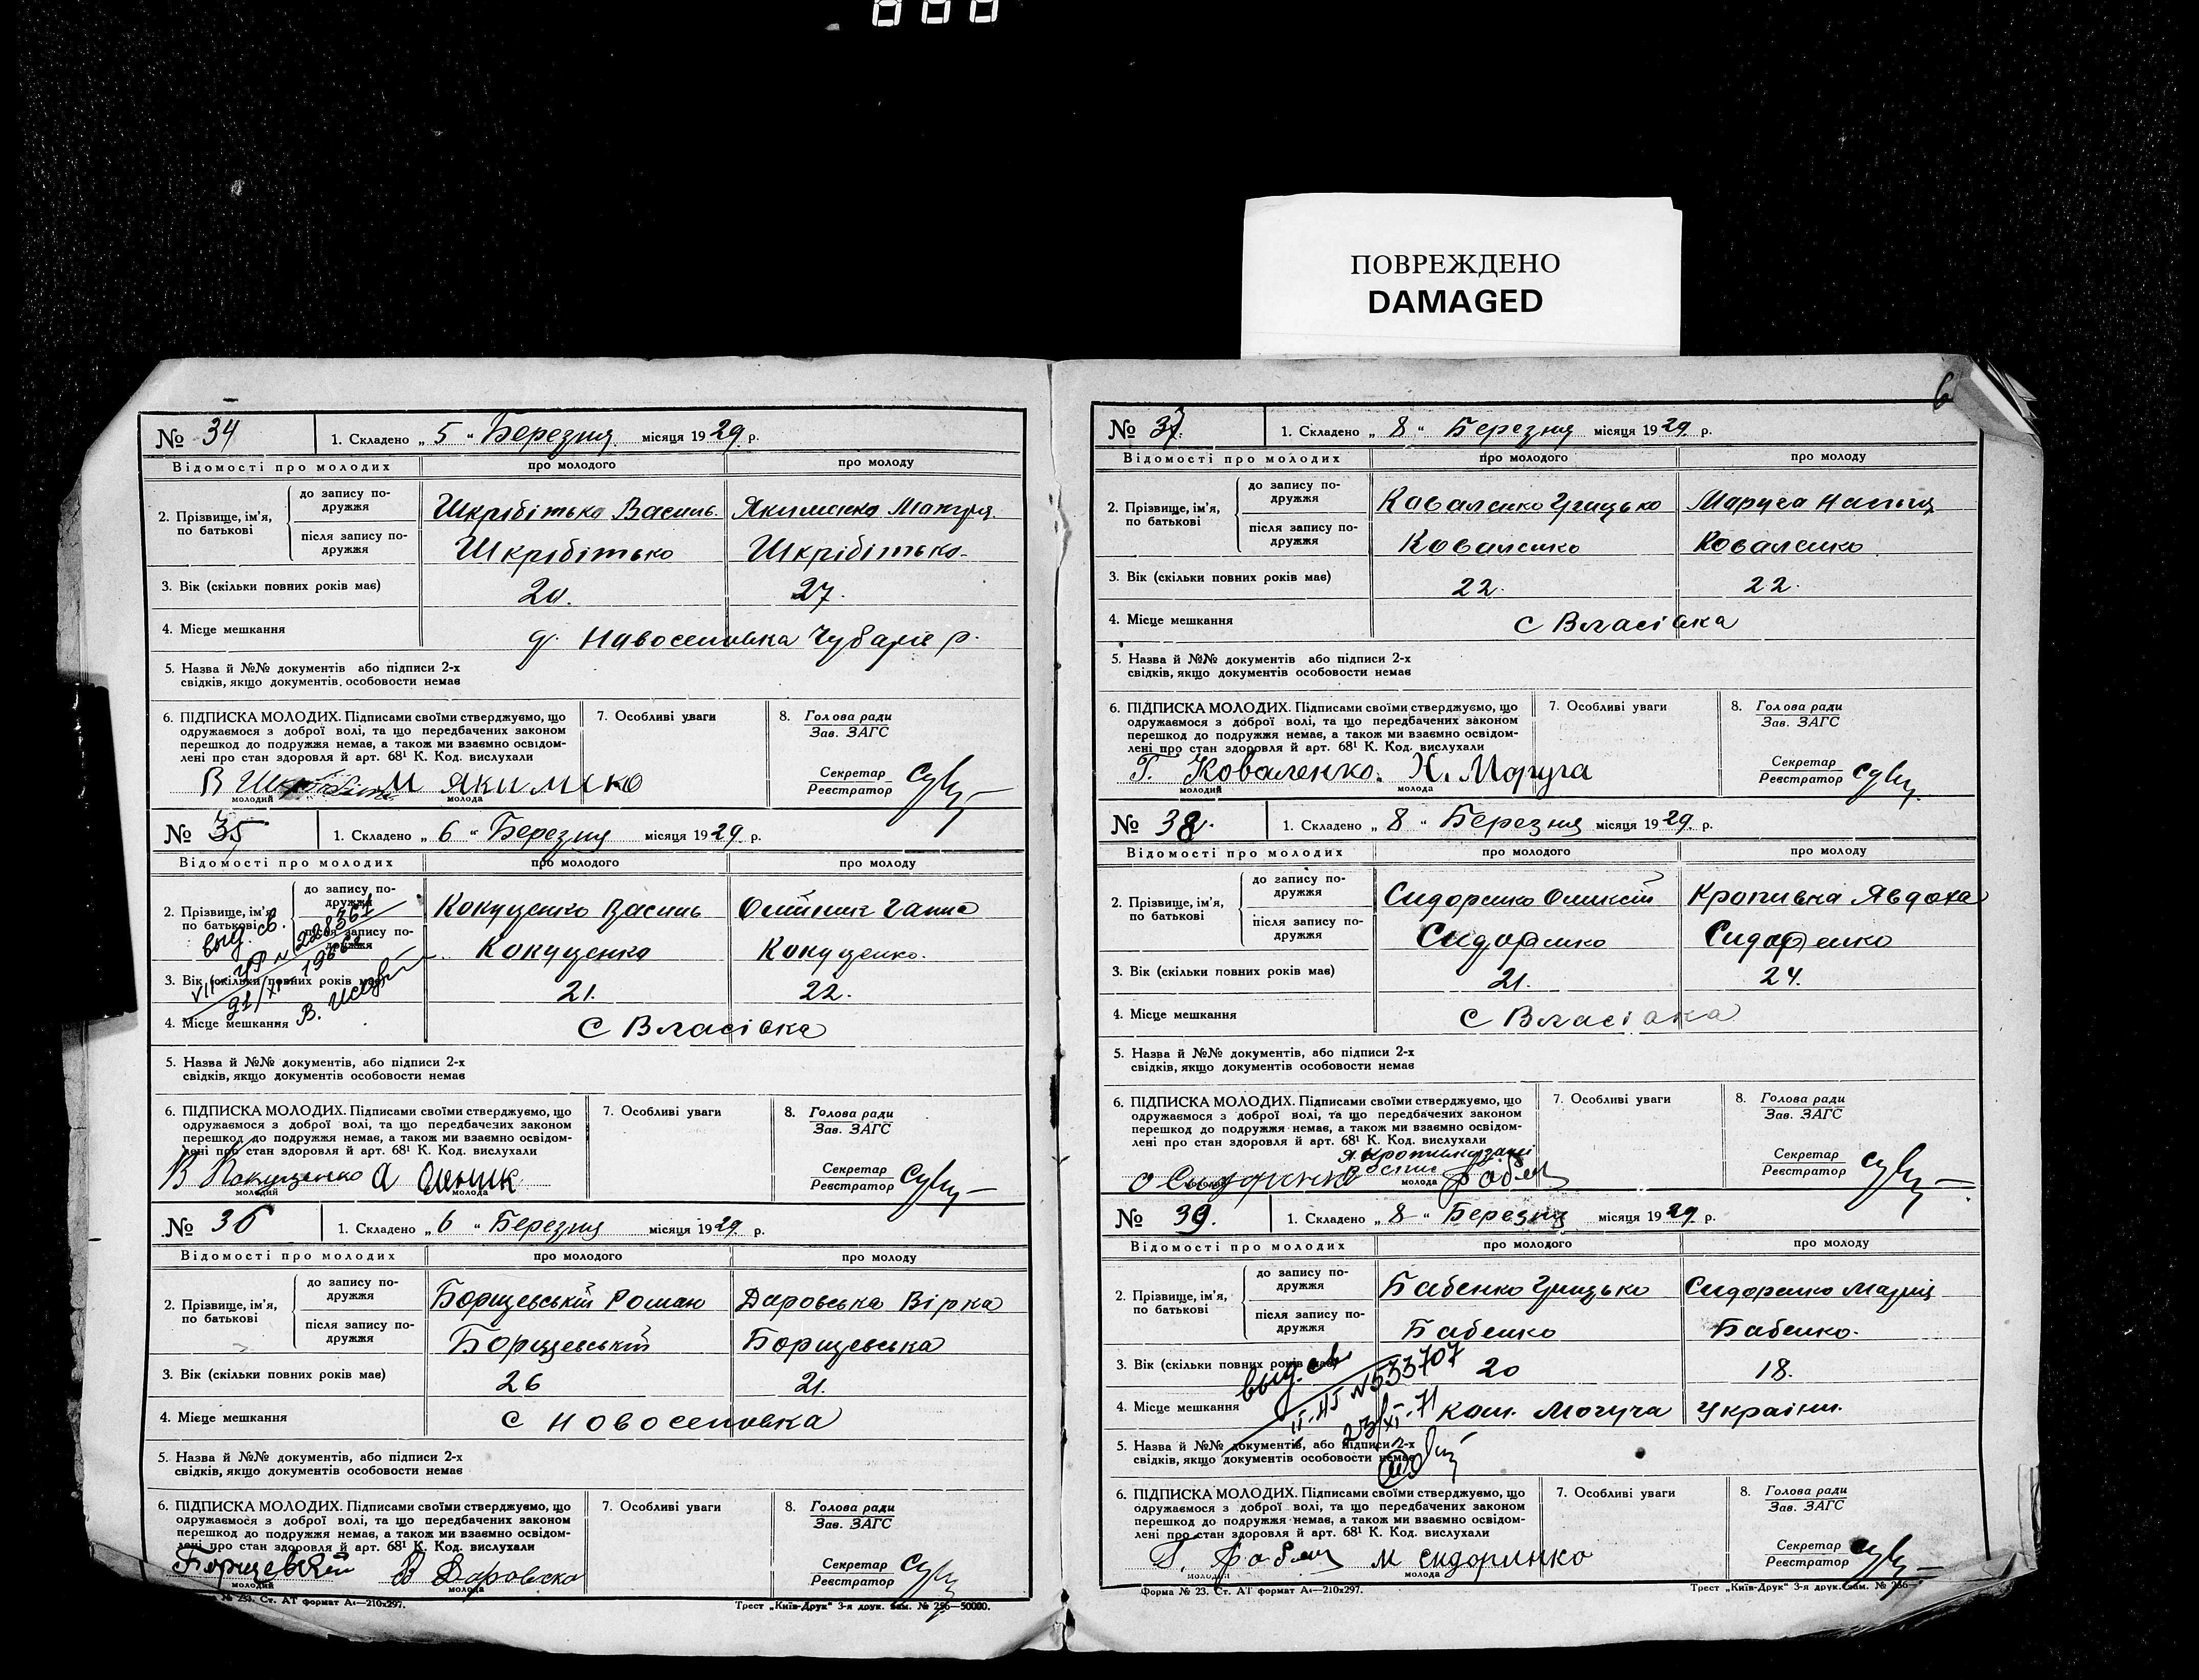 ПОВРЕЖДЕНО
DAMAGED
6
№ 34 1. Складено „ 5 “ Березня місяця 1929 р.
Відомості про молодих про молодого про молоду
2. Прізвище, ім'я, по батькові
до запису подружжя Шкрібітько Василь Якименко
після запису подружжя Шкрібітько Шкрібітько
3. Вік (скільки повних років має) 20. 27.
4. Місце мешкання Новоселовка р.
5. Назва й №№ документів або підписи 2-х
свідків, якщо документів особовости немає
6. ПІДПИСКА МОЛОДИХ. Підписами своїми стверджуємо, що
одружаємося з доброї волі, та що передбачених законом
перешкод до подружжя немає, а також ми взаємно освідом-
лені про стан здоровля й арт. 68¹ К. Код. вислухали
7. Особливі уваги
8. Голова ради
Зав. ЗАГС
Секретар
Реєстратор
М Якимеко
молодий молода
№ 35 1. Складено „ 6 “ Березня місяця 1929 р.
Відомості про молодих про молодого про молоду
2. Прізвище, ім'я, по батькові
до запису подружжя Кокущенко Василь Олійник Ганна
після запису подружжя Кокущенко Кокущенко.
выд. св.
3. Вік (скільки повних років має) 21. 22.
4. Місце мешкання с Власівка
5. Назва й №№ документів, або підписи 2-х
свідків, якщо документів особовости немає
6. ПІДПИСКА МОЛОДИХ. Підписами своїми стверджуємо, що
одружаємося з доброї волі, та що передбачених законом
перешкод до подружжя немає, а також ми взаємно освідом-
лені про стан здоровля й арт. 68¹ К. Код. вислухали
7. Особливі уваги
8. Голова ради
Зав. ЗАГС
Секретар
Реєстратор
В Кокущенко А Олєник
молодий молода
№ 36 1. Складено „ 6 “ Березня місяця 1929 р.
Відомості про молодих про молодого про молоду
2. Прізвище, ім'я, по батькові
до запису подружжя Борщевський Роман Даровська Вірка
після запису подружжя Борщевський Борщевська
3. Вік (скільки повних років має) 26 21.
4. Місце мешкання с Новоселовка
5. Назва й №№ документів, або підписи 2-х
свідків, якщо документів особовости немає
6. ПІДПИСКА МОЛОДИХ. Підписами своїми стверджуємо, що
одружаємося з доброї волі, та що передбачених законом
перешкод до подружжя немає, а також ми взаємно освідом-
лені про стан здоровля й арт. 68¹ К. Код. вислухали
7. Особливі уваги
8. Голова ради
Зав. ЗАГС
Секретар
Реєстратор
Борщевский В Даровска
молодий молода
№ 253. Ст. АТ формат А₄—210x297. Трест „Київ-Друк“ 3-я друк. Зам. № 256—50000.
№ 37. 1. Складено „ 8 “ Березня місяця 1929 р.
Відомості про молодих про молодого про молоду
2. Прізвище, ім'я, по батькові
до запису подружжя Коваленко Грицько Маруга
після запису подружжя Коваленко Коваленко
3. Вік (скільки повних років має) 22. 22.
4. Місце мешкання с Власівка
5. Назва й №№ документів або підписи 2-х
свідків, якщо документів особовости немає
6. ПІДПИСКА МОЛОДИХ. Підписами своїми стверджуємо, що
одружаємося з доброї волі, та що передбачених законом
перешкод до подружжя немає, а також ми взаємно освідом-
лені про стан здоровля й арт. 68¹ К. Код. вислухали
7. Особливі уваги
8. Голова ради
Зав. ЗАГС
Секретар
Реєстратор
Г. Коваленко. Н. Маруга
молодий молода
№ 38. 1. Складено „ 8 “ Березня місяця 1929 р.
Відомості про молодих про молодого про молоду
2. Прізвище, ім'я, по батькові
до запису подружжя Сидоренко Олексій Кропивка Явдоха
після запису подружжя Сидоренко Сидоренко
3. Вік (скільки повних років має) 21. 24.
4. Місце мешкання с Власівка
5. Назва й №№ документів, або підписи 2-х
свідків, якщо документів особовости немає
6. ПІДПИСКА МОЛОДИХ. Підписами своїми стверджуємо, що
одружаємося з доброї волі, та що передбачених законом
перешкод до подружжя немає, а також ми взаємно освідом-
лені про стан здоровля й арт. 68¹ К. Код. вислухали
7. Особливі уваги
8. Голова ради
Зав. ЗАГС
Секретар
Реєстратор
О Сидоринко
молода
№ 39. 1. Складено „ 8 “ Березня місяця 1929 р.
Відомості про молодих про молодого про молоду
2. Прізвище, ім'я, по батькові
до запису подружжя Бабенко Грицько Сидоренко Марія
після запису подружжя Бабенко Бабенко.
3. Вік (скільки повних років має) 20 18.
выд. св
№533707
23/XI-71
4. Місце мешкання Могуча України.
5. Назва й №№ документів, або підписи 2-х
свідків, якщо документів особовости немає
6. ПІДПИСКА МОЛОДИХ. Підписами своїми стверджуємо, що
одружаємося з доброї волі, та що передбачених законом
перешкод до подружжя немає, а також ми взаємно освідом-
лені про стан здоровля й арт. 68¹ К. Код. вислухали
7. Особливі уваги
8. Голова ради
Зав. ЗАГС
Секретар
Реєстратор
Г. М Сидоринко
молодий молода
Форма № 23. Ст. АТ формат А₄—210x297. Трест „Київ-Друк“ 3-я друк. Зам. № 256—